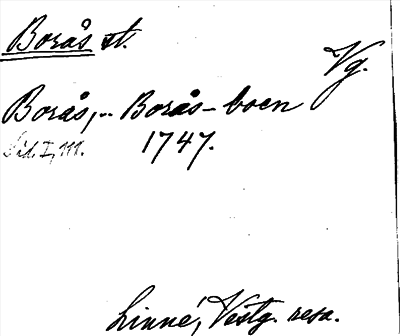 Borås st.
Vg.
Borås, .. Borås-boen
Lid. I, 111.
1747.
Linné, Västg. resa.